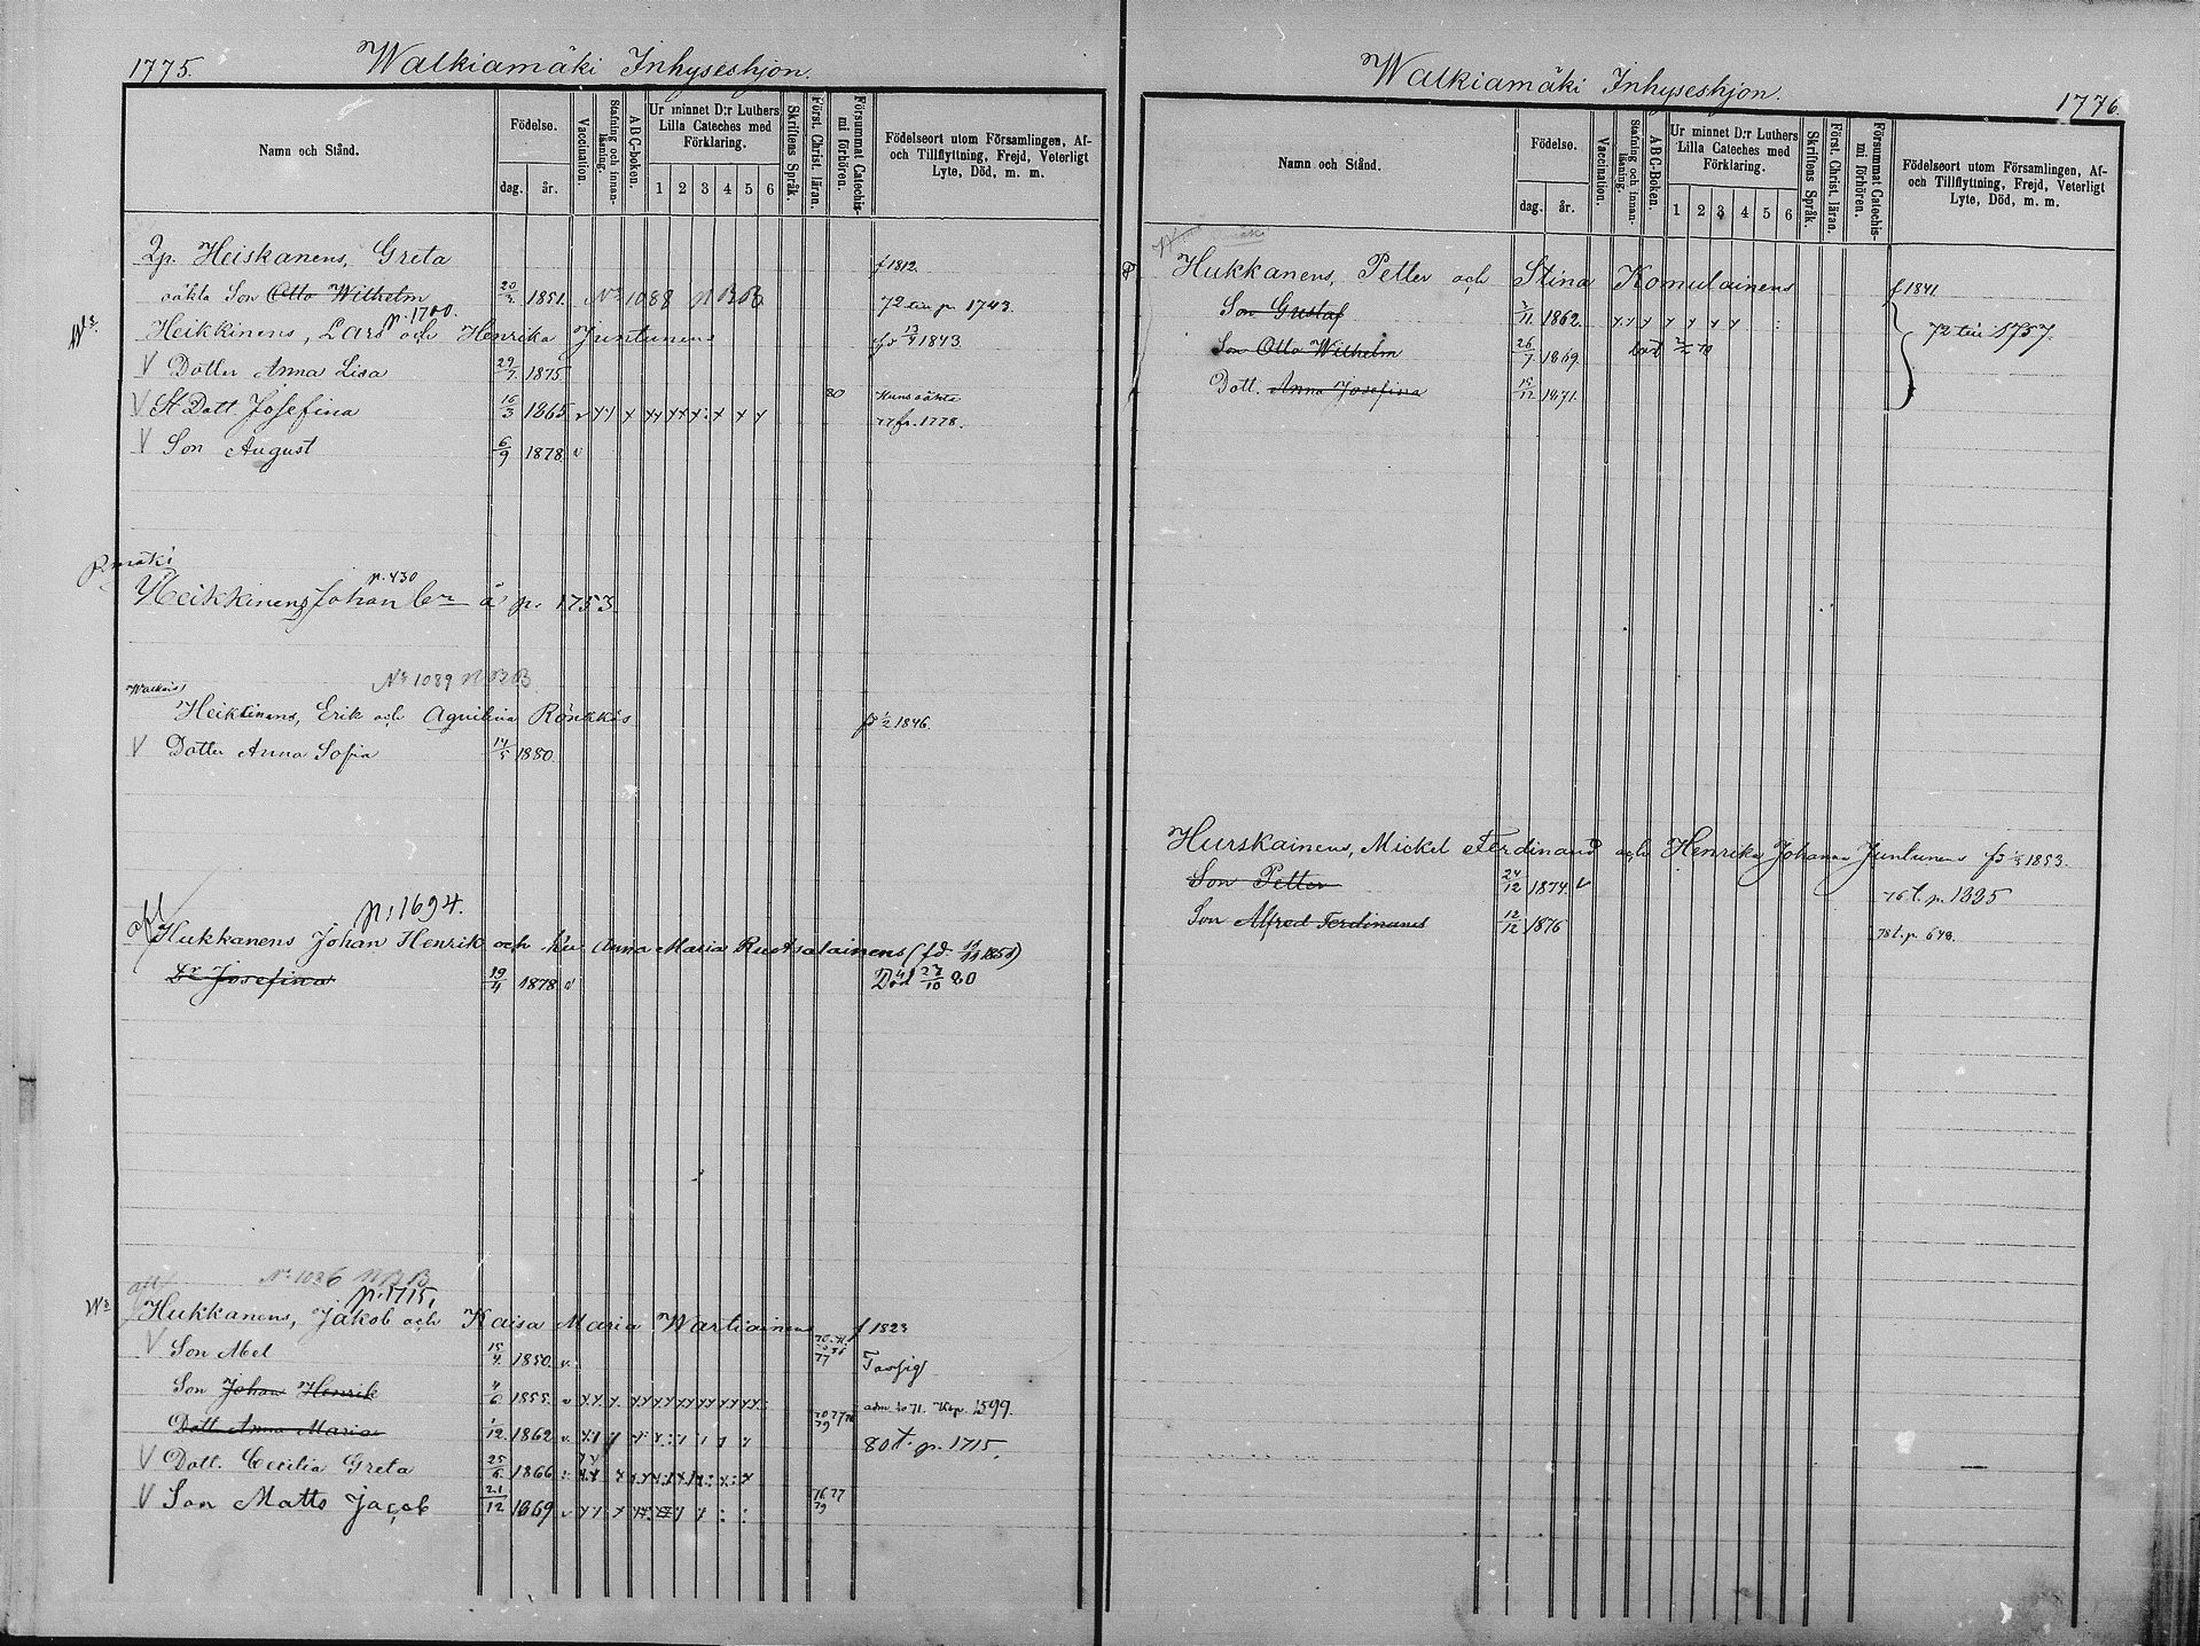 1775. Walkiamäki Inhyseshjon.
Namn och Stånd.
Födelse.
dag. år.
Vaccination.
Stafning och innan-läsning.
ABC-boken.
Ur minnet D:r Luthers Lilla Cateches med Förklaring.
1 2 3 4 5 6
Skriftens Språk.
Först. Christ. läran.
Försummat Catechis-mi förhören.
Födelseort utom Församlingen, Af- och Tillflyttning, Frejd, Veterligt Lyte, Död, m. m.
Qp. Heiskanens, Greta f 1812.
oäkta Son Otto Wilhelm 20/3 1851. No 1088 NBB 72 till p 1743.
p. 1700.
Heikkinens, Lars och Henrika Juntunens fd 13/9 1843.
V Dotter Anna Lisa 29/7 1875
V St Dott Josefina 16/3 1865 80 Hans oäkta 77 fr. 1778.
V Son August 6/9 1878 v
Rmäki
p. 430
Heikkinens Johan är p. 1753
No 1089 NBB
Heikkinens, Erik och Aquilina Rönkkös fd 1/2 1846.
V Dotter Anna Sofia 14/5 1880
p. 1694.
Hukkanens Johan Henrik och hu Anna Maria Ruotsalainens (fd. 1858)
Dr Josefina 19/4 1878 v Död 27/10 80
No 1086 NBB
p. 1715.
Hukkanens, Jakob och Kaisa Maria Wartiainens f 1823
V Son Abel 15/4 1850. v. 77
Son Johan Henrik 4/6 1855. adm 10 71. Kop. 1599.
Dott Anna Maria 1/12 1862 80 t. p. 1715.
V Dott. Cecilia Greta 25/6 1866
V Son Matts Jacob 21/12 1869 76 77 79
Walkiamäki Inhyseshjon. 1776.
Namn och Stånd.
Födelse.
dag. år.
Vaccination.
Stafning och innan-läsning.
ABC-Boken.
Ur minnet D:r Luthers Lilla Cateches med Förklaring.
1 2 3 4 5 6
Skriftens Språk.
Först. Christ. läran.
Försummat Catechis-mi förhören.
Födelseort utom Församlingen, Af- och Tillflyttning, Frejd, Veterligt Lyte, Död, m. m.
Hukkanens, Petter och Stina Komulainens f 1841.
Son Gustaf 1862. 72 till 1757.
Son Otto Wilhelm 26/7 1869. död
Dott. Anna Josefina 15/12 1871.
Hurskainens, Mickel Ferdinand och Henrika Johanna Juntunens fd 1853.
Son Petter 24/12 1874. v 76 t. p. 1325
Son Alfred Ferdinand 12/12 1876 78 t. p. 648.